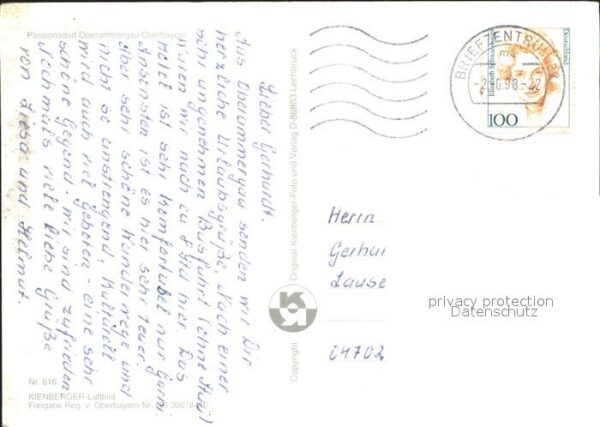 Passionsdorf Oberammergau Oberbayern
Lieber Gerhardt.
Aus Oberammergau senden wir Dir
herzliche Urlaubsgrüße. Nach einer
sehr angenehmen Busfahrt (ohne Stau)
waren wir nach ca 8 Std hier. Das
Hotel ist sehr komfortabel nur Garni
Ansonsten ist es hier sehr teuer.
aber sehr schöne Wanderwege und
nicht so anstrengend, Kulturell
wird auch viel geboten - eine sehr
schöne Gegend - wir sind zufrieden
Nochmals viele liebe Grüße
von Liesa und Helmut.
Nr. 616
KIENBERGER-Luftbild
Freigabe Reg. v. Oberbayern Nr. 300/8
Copyright
Original Kienberger-Foto und Verlag D-86983 Lechbruck
BRIEFZENTRUM
-2.6.98-22
Deutschland
100
Herrn
Gerhar
Lause
04702
privacy protection
Datenschutz